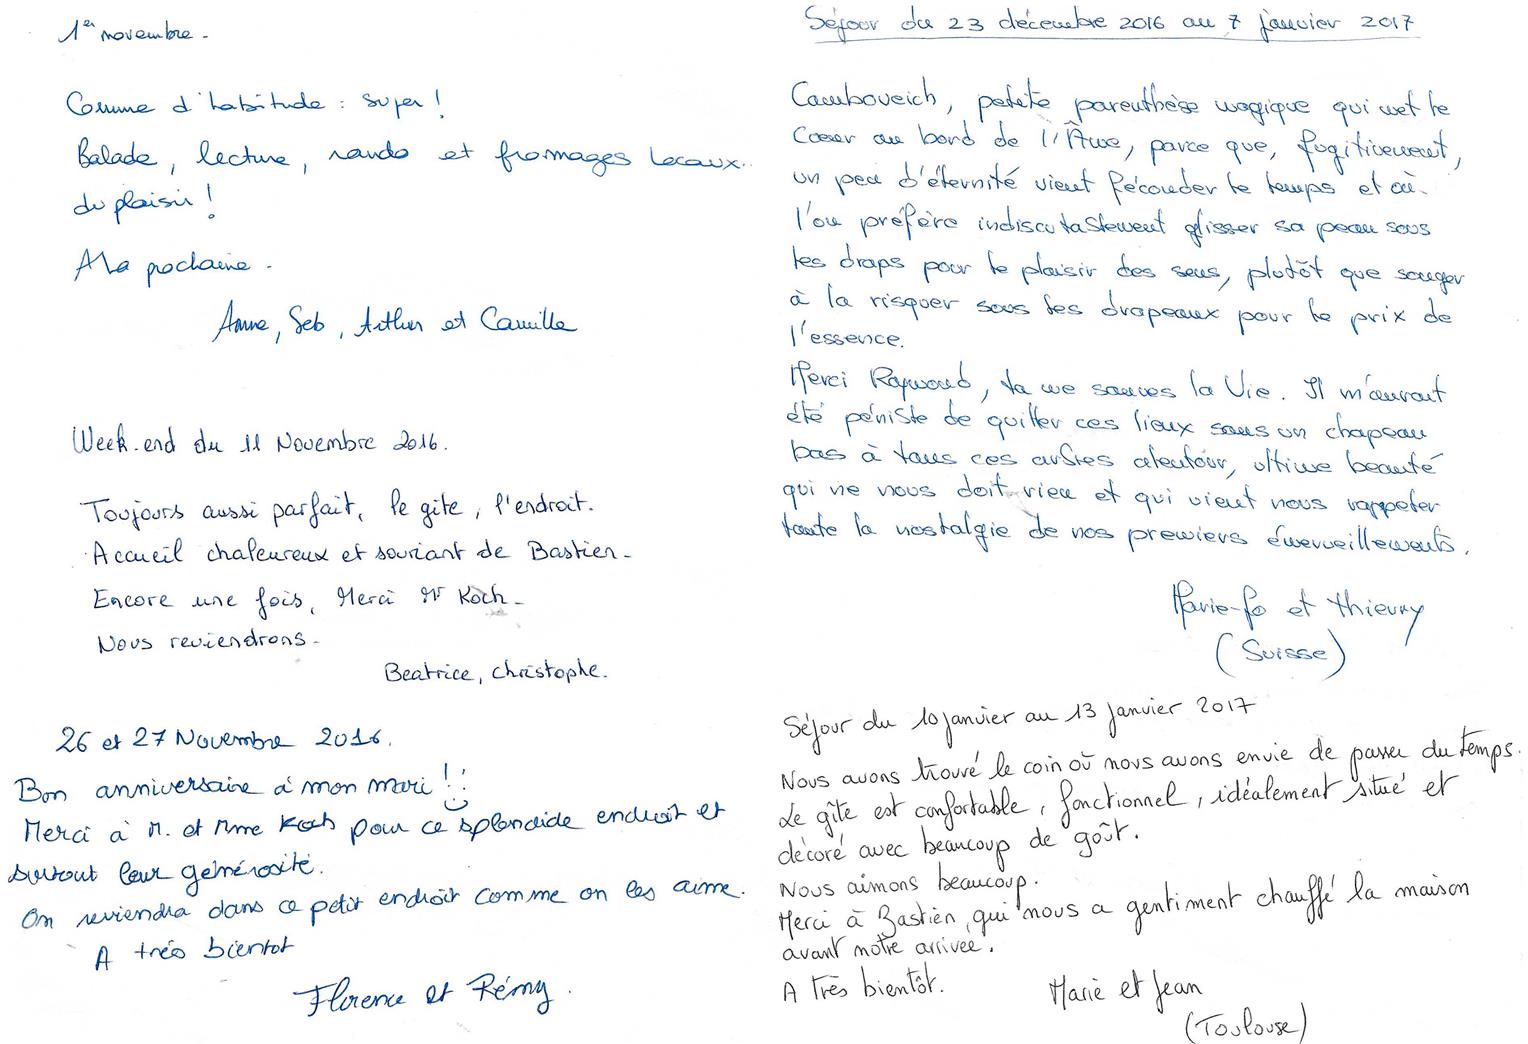 1er novembre.
Comme d'habitude : super !
Balade, lecture, rando et fromages locaux..
du plaisir !
A la prochaine.
Anne, Seb, Arthur et Camille
Week-end du 11 Novembre 2016.
Toujours aussi parfait, le gite, l'endroit.
Accueil chaleureux et souriant de Bastien.
Encore une fois, Merci Mr Koch.
Nous reviendrons.
Beatrice, christophe.
26 et 27 Novembre 2016.
Bon anniversaire à mon mari !
Merci à M. et Mme Koch pour ce splendide endroit et
surtout leur générosité.
On reviendra dans ce petit endroit comme on les aime.
A très bientot
Florence et Rémy.
Séjour du 23 décembre 2016 au 7 janvier 2017
Camboveich, petite parenthèse magique qui met le
Cœur au bord de l'Âme, parce que, fugitivement,
un peu d'éternité vient féconder le temps et où
l'on préfère indiscutablement glisser sa peau sous
les draps pour le plaisir des sens, plutôt que songer
à la risquer sous les drapeaux pour le prix de
l'essence.
Merci Raymond, tu me sauves la Vie. Il m'aurait
été pénible de quitter ces lieux sans un chapeau
bas à tous ces arbres alentour, ultime beauté
qui ne nous doit rien et qui vient nous rappeler
toute la nostalgie de nos premiers émerveillements.
Marie-Jo et Thierry
(Suisse)
Séjour du 10 janvier au 13 janvier 2017
Nous avons trouvé le coin où nous avons envie de passer du temps.
Le gîte est confortable, fonctionnel, idéalement situé et
décoré avec beaucoup de goût.
Nous aimons beaucoup.
Merci à Bastien, qui nous a gentiment chauffé la maison
avant notre arrivée.
A très bientôt.
Marie et Jean
(Toulouse)